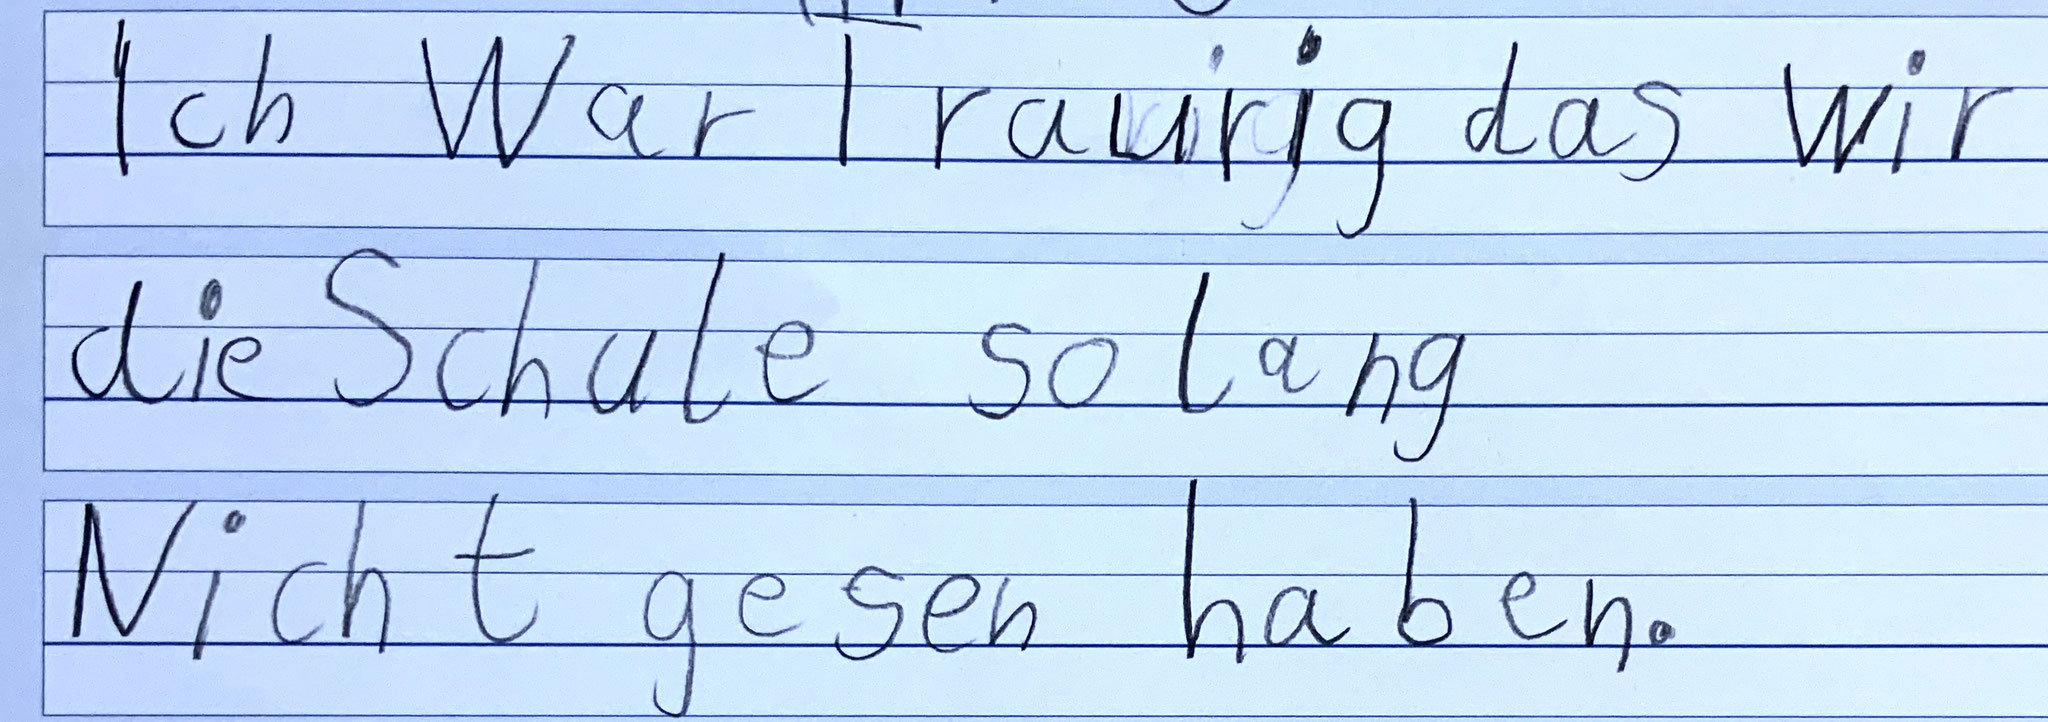 Ich War Traurig das wir
die Schule so lang
Nicht gesen haben.